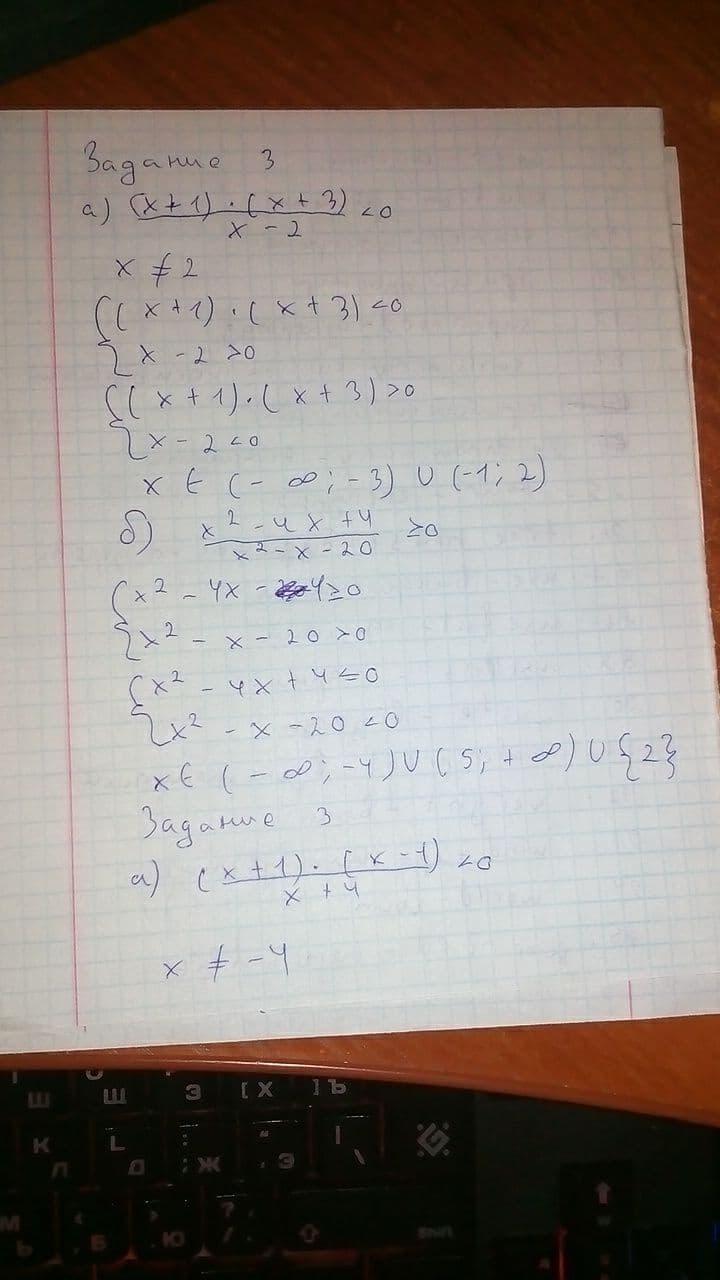 Задание 3
а) (x+1)·(x+3)/x-2 <0
x ≠ 2
{(x+1)·(x+3)<0
{x-2>0
{(x+1)·(x+3)>0
{x-2<0
x ∈ (-∞; -3) ∪ (-1; 2)
б) x²-4x+4/x²-x-20 ≥0
{x²-4x-4≥0
{x²-x-20>0
{x²-4x+4≤0
{x²-x-20<0
x∈ (-∞; -4) ∪ (5; +∞) ∪ {2}
Задание 3
а) (x+1)·(x-1)/x+4 <0
x ≠ -4
Ш Ш З [ Х ] Ъ
К Л L Д ; Ж " Э \
М Ь < Б > Ю ? /